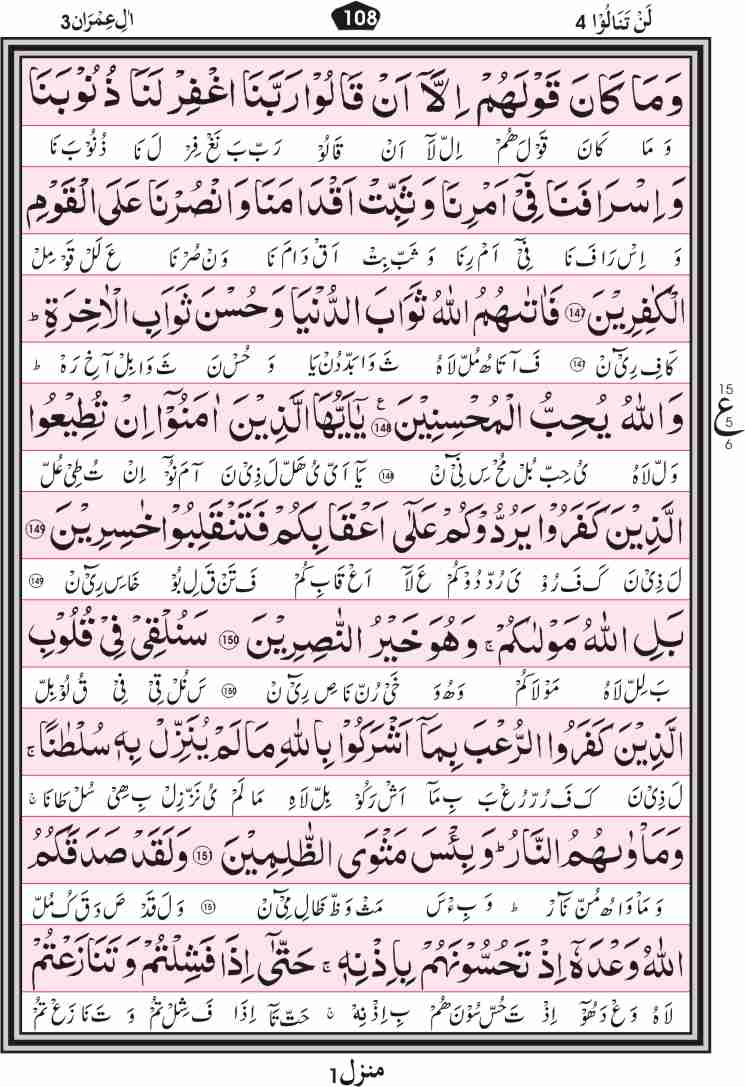 لَنْ تَنَالُوْا 4
108
اٰلِ عِمْرَان 3
وَمَا كَانَ قَوْلَهُمْ اِلَّاۤ اَنْ قَالُوْا رَبَّنَا اغْفِرْ لَنَا ذُنُوْبَنَا
وَ مَا كَانَ قَوْلَ هُمْ اِلْ لَاۤ اَنْ قَالُوْ رَبْ بَ نَغْ فِرْ لَ نَا ذُنُوْبَ نَا
وَاِسْرَافَنَا فِیْۤ اَمْرِنَا وَثَبِّتْ اَقْدَامَنَا وَانْصُرْنَا عَلَی الْقَوْمِ
وَ اِسْ رَافَ نَا فِیْۤ اَمْ رِنَا وَ ثَبْ بِتْ اَقْ دَامَ نَا وَنْ صُرْنَا عَ لَلْ قَوْ مِلْ
الْكٰفِرِیْنَ ﴿147﴾ فَاٰتٰىهُمُ اللّٰهُ ثَوَابَ الدُّنْیَا وَحُسْنَ ثَوَابِ الْاٰخِرَةِ ؕ
كَافِ رِیْۤ نْ ﴿147﴾ فَ آتَاهُ مُلْ لَاهُ ثَ وَابَدْ دُنْ یَا وَ حُسْ نَ ثَ وَابِلْ آخِ رَهْ ؕ
وَاللّٰهُ یُحِبُّ الْمُحْسِنِیْنَ ﴿148﴾ ع یٰۤاَیُّهَا الَّذِیْنَ اٰمَنُوْۤا اِنْ تُطِیْعُوا
15
ع
5
6
وَلْ لَاهُ یُ حِبْ بُلْ مُحْ سِ نِیْۤ نْ ﴿148﴾ یَاۤ اَیْ یُ هَلْ لَ ذِیْ نَ آمَ نُوْۤ اِنْ تُ طِیْ عُلْ
الَّذِیْنَ كَفَرُوْا یَرُدُّوْكُمْ عَلٰۤی اَعْقَابِكُمْ فَتَنْقَلِبُوْا خٰسِرِیْنَ ﴿149﴾
لَ ذِیْ نَ كَ فَ رُوْ یَ رُدْ دُوْ كُمْ عَ لَاۤ اَعْ قَابِ كُمْ فَ تَنْ قَ لِ بُوْ خَاسِ رِیْۤ نْ ﴿149﴾
بَلِ اللّٰهُ مَوْلٰىكُمْ ۚ وَهُوَ خَیْرُ النّٰصِرِیْنَ ﴿150﴾ سَنُلْقِیْ فِیْ قُلُوْبِ
بَ لِلْ لَاهُ مَوْلَا كُمْ وَهُوَ خَیْ رُنْ نَاصِ رِیْۤ نْ ﴿150﴾ سَ نُلْ قِیْ فِیْ قُ لُوْ بِلْ
الَّذِیْنَ كَفَرُوا الرُّعْبَ بِمَاۤ اَشْرَكُوْا بِاللّٰهِ مَا لَمْ یُنَزِّلْ بِهٖ سُلْطٰنًا ۚ
لَ ذِیْ نَ كَ فَ رُرْ رُعْ بَ بِ مَاۤ اَشْ رَكُوْ بِلْ لَاهِ مَا لَمْ یُ نَزْ زِلْ بِ هِیْ سُلْ طَانَا ۚ
وَمَاْوٰىهُمُ النَّارُ ؕ وَبِئْسَ مَثْوَی الظّٰلِمِیْنَ ﴿151﴾ وَلَقَدْ صَدَقَكُمُ
وَ مَاْ وَاهُ مُنْ نَاۤرْ ؕ وَ بِءْ سَ مَثْ وَظْ ظَالِ مِیْۤ نْ ﴿151﴾ وَ لَ قَدْ صَ دَقَ كُ مُلْ
اللّٰهُ وَعْدَهٗۤ اِذْ تَحُسُّوْنَهُمْ بِاِذْنِهٖ ۚ حَتّٰۤی اِذَا فَشِلْتُمْ وَتَنَازَعْتُمْ
لَاهُ وَعْ دَهُوْۤ اِذْ تَ حُسْ سُوْنَ هُمْ بِ اِذْ نِهْ ۚ حَتْ تَاۤ اِذَا فَ شِلْ تُمْ وَ تَ نَا زَعْ تُمْ
منزل 1